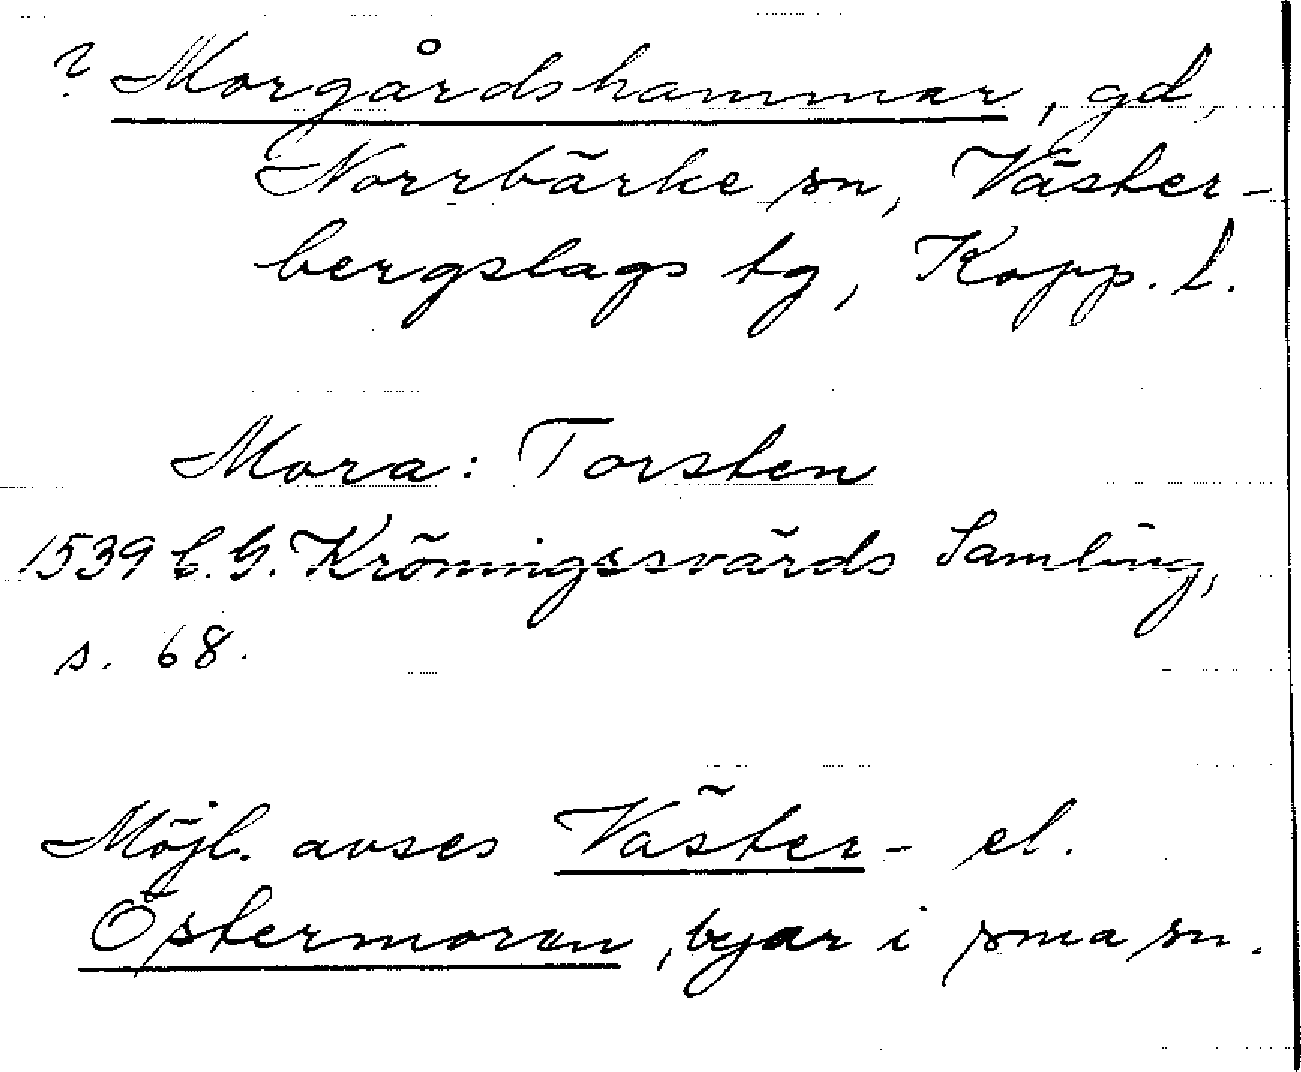 ? Morgårdshammar, gd,
Norrbärke sn, Väster-
bergslags tg, Kopp. l.
Mora: Torsten
1539 C. G. Kröningssvärds Samling,
s. 68.
Möjl. avses Väster- el.
Östermoran, byar i sma sn.